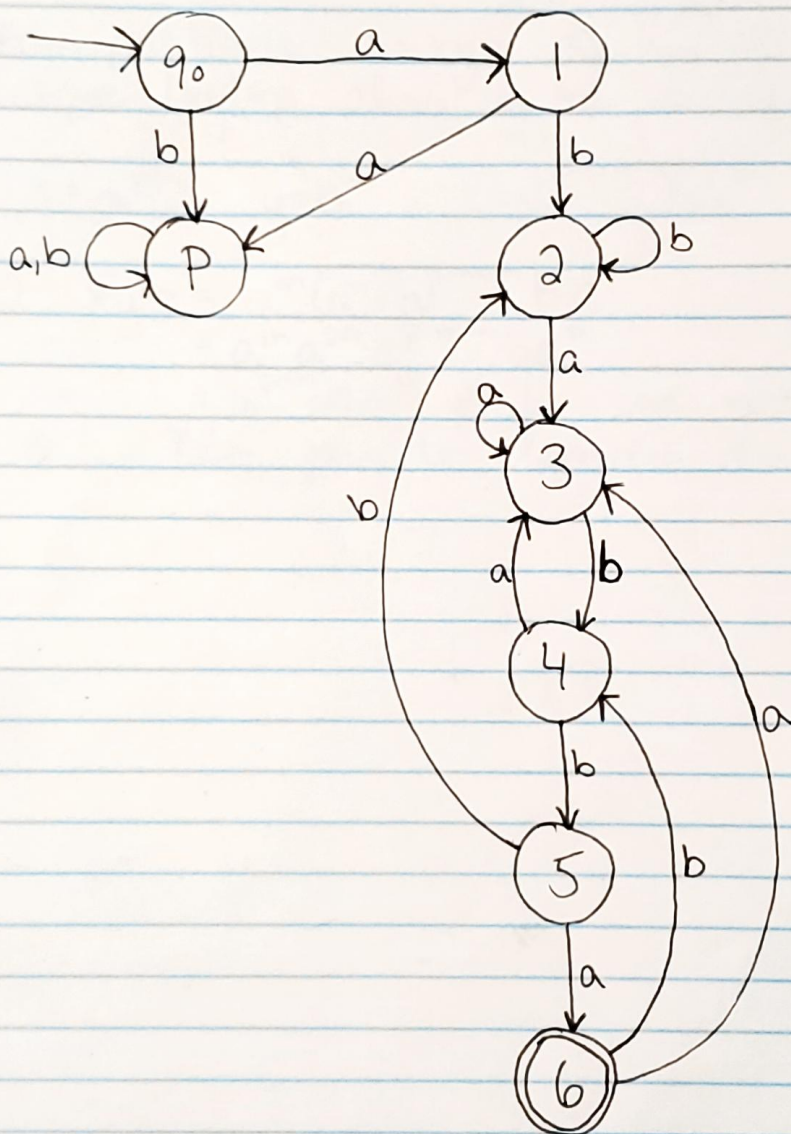 q₀ a 1
b a b
a,b P 2 b
a
a
3
b
a b
4
a
b
5 b
a
6